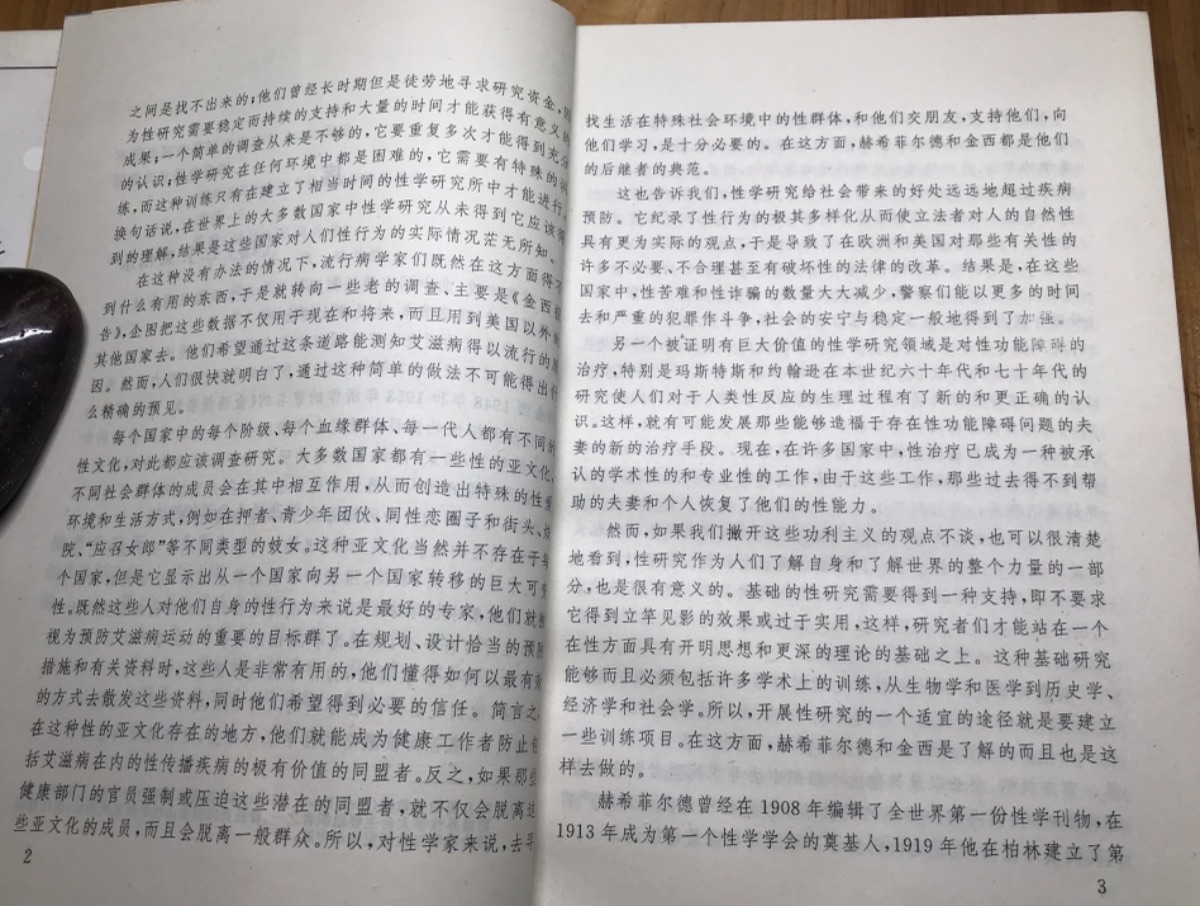 之间是找不出来的；他们曾经长时期但是徒劳地寻求研究资金，因
为性研究需要稳定而持续的支持和大量的时间才能获得有意义的
成果；一个简单的调查从来是不够的，它要重复多次才能得到充分
的认识；性学研究在任何环境中都是困难的，它需要有特殊的训
练，而这种训练只有在建立了相当时间的性学研究所中才能进行。
换句话说，在世界上的大多数国家中性学研究从未得到它应该得
到的理解，结果是这些国家对人们性行为的实际情况茫无所知。
在这种没有办法的情况下，流行病学家们既然在这方面得不
到什么有用的东西，于是就转向一些老的调查、主要是《金西报
告》，企图把这些数据不仅用于现在和将来，而且用到美国以外的
其他国家去。他们希望通过这条道路能测知艾滋病得以流行的原
因。然而，人们很快就明白了，通过这种简单的做法不可能得出什
么精确的预见。
每个国家中的每个阶级、每个血缘群体、每一代人都有不同的
性文化，对此都应该调查研究。大多数国家都有一些性的亚文化，
不同社会群体的成员会在其中相互作用，从而创造出特殊的性爱
环境和生活方式，例如在押者、青少年团伙、同性恋圈子和街头、妓
院、“应召女郎”等不同类型的妓女。这种亚文化当然并不存在于每
个国家，但是它显示出从一个国家向另一个国家转移的巨大可变
性。既然这些人对他们自身的性行为来说是最好的专家，他们就被
视为预防艾滋病运动的重要的目标群了。在规划、设计恰当的预防
措施和有关资料时，这些人是非常有用的，他们懂得如何以最有效
的方式去散发这些资料，同时他们希望得到必要的信任。简言之，
在这种性的亚文化存在的地方，他们就能成为健康工作者防止包
括艾滋病在内的性传播疾病的极有价值的同盟者。反之，如果那些
健康部门的官员强制或压迫这些潜在的同盟者，就不仅会脱离这
些亚文化的成员，而且会脱离一般群众。所以，对性学家来说，去寻
2
找生活在特殊社会环境中的性群体，和他们交朋友，支持他们，向
他们学习，是十分必要的。在这方面，赫希菲尔德和金西都是他们
的后继者的典范。
这也告诉我们，性学研究给社会带来的好处远远地超过疾病
预防。它纪录了性行为的极其多样化从而使立法者对人的自然性
具有更为实际的观点，于是导致了在欧洲和美国对那些有关性的
许多不必要、不合理甚至有破坏性的法律的改革。结果是，在这些
国家中，性苦难和性诈骗的数量大大减少，警察们能以更多的时间
去和严重的犯罪作斗争，社会的安宁与稳定一般地得到了加强。
另一个被证明有巨大价值的性学研究领域是对性功能障碍的
治疗，特别是玛斯特斯和约翰逊在本世纪六十年代和七十年代的
研究使人们对于人类性反应的生理过程有了新的和更正确的认
识。这样，就有可能发展那些能够造福于存在性功能障碍问题的夫
妻的新的治疗手段。现在，在许多国家中，性治疗已成为一种被承
认的学术性的和专业性的工作，由于这些工作，那些过去得不到帮
助的夫妻和个人恢复了他们的性能力。
然而，如果我们撇开这些功利主义的观点不谈，也可以很清楚
地看到，性研究作为人们了解自身和了解世界的整个力量的一部
分，也是很有意义的。基础的性研究需要得到一种支持，即不要求
它得到立竿见影的效果或过于实用，这样，研究者们才能站在一个
在性方面具有开明思想和更深的理论的基础之上。这种基础研究
能够而且必须包括许多学术上的训练，从生物学和医学到历史学、
经济学和社会学。所以，开展性研究的一个适宜的途径就是要建立
一些训练项目。在这方面，赫希菲尔德和金西是了解的而且也是这
样去做的。
赫希菲尔德曾经在1908年编辑了全世界第一份性学刊物，在
1913年成为第一个性学学会的奠基人，1919年他在柏林建立了第
3